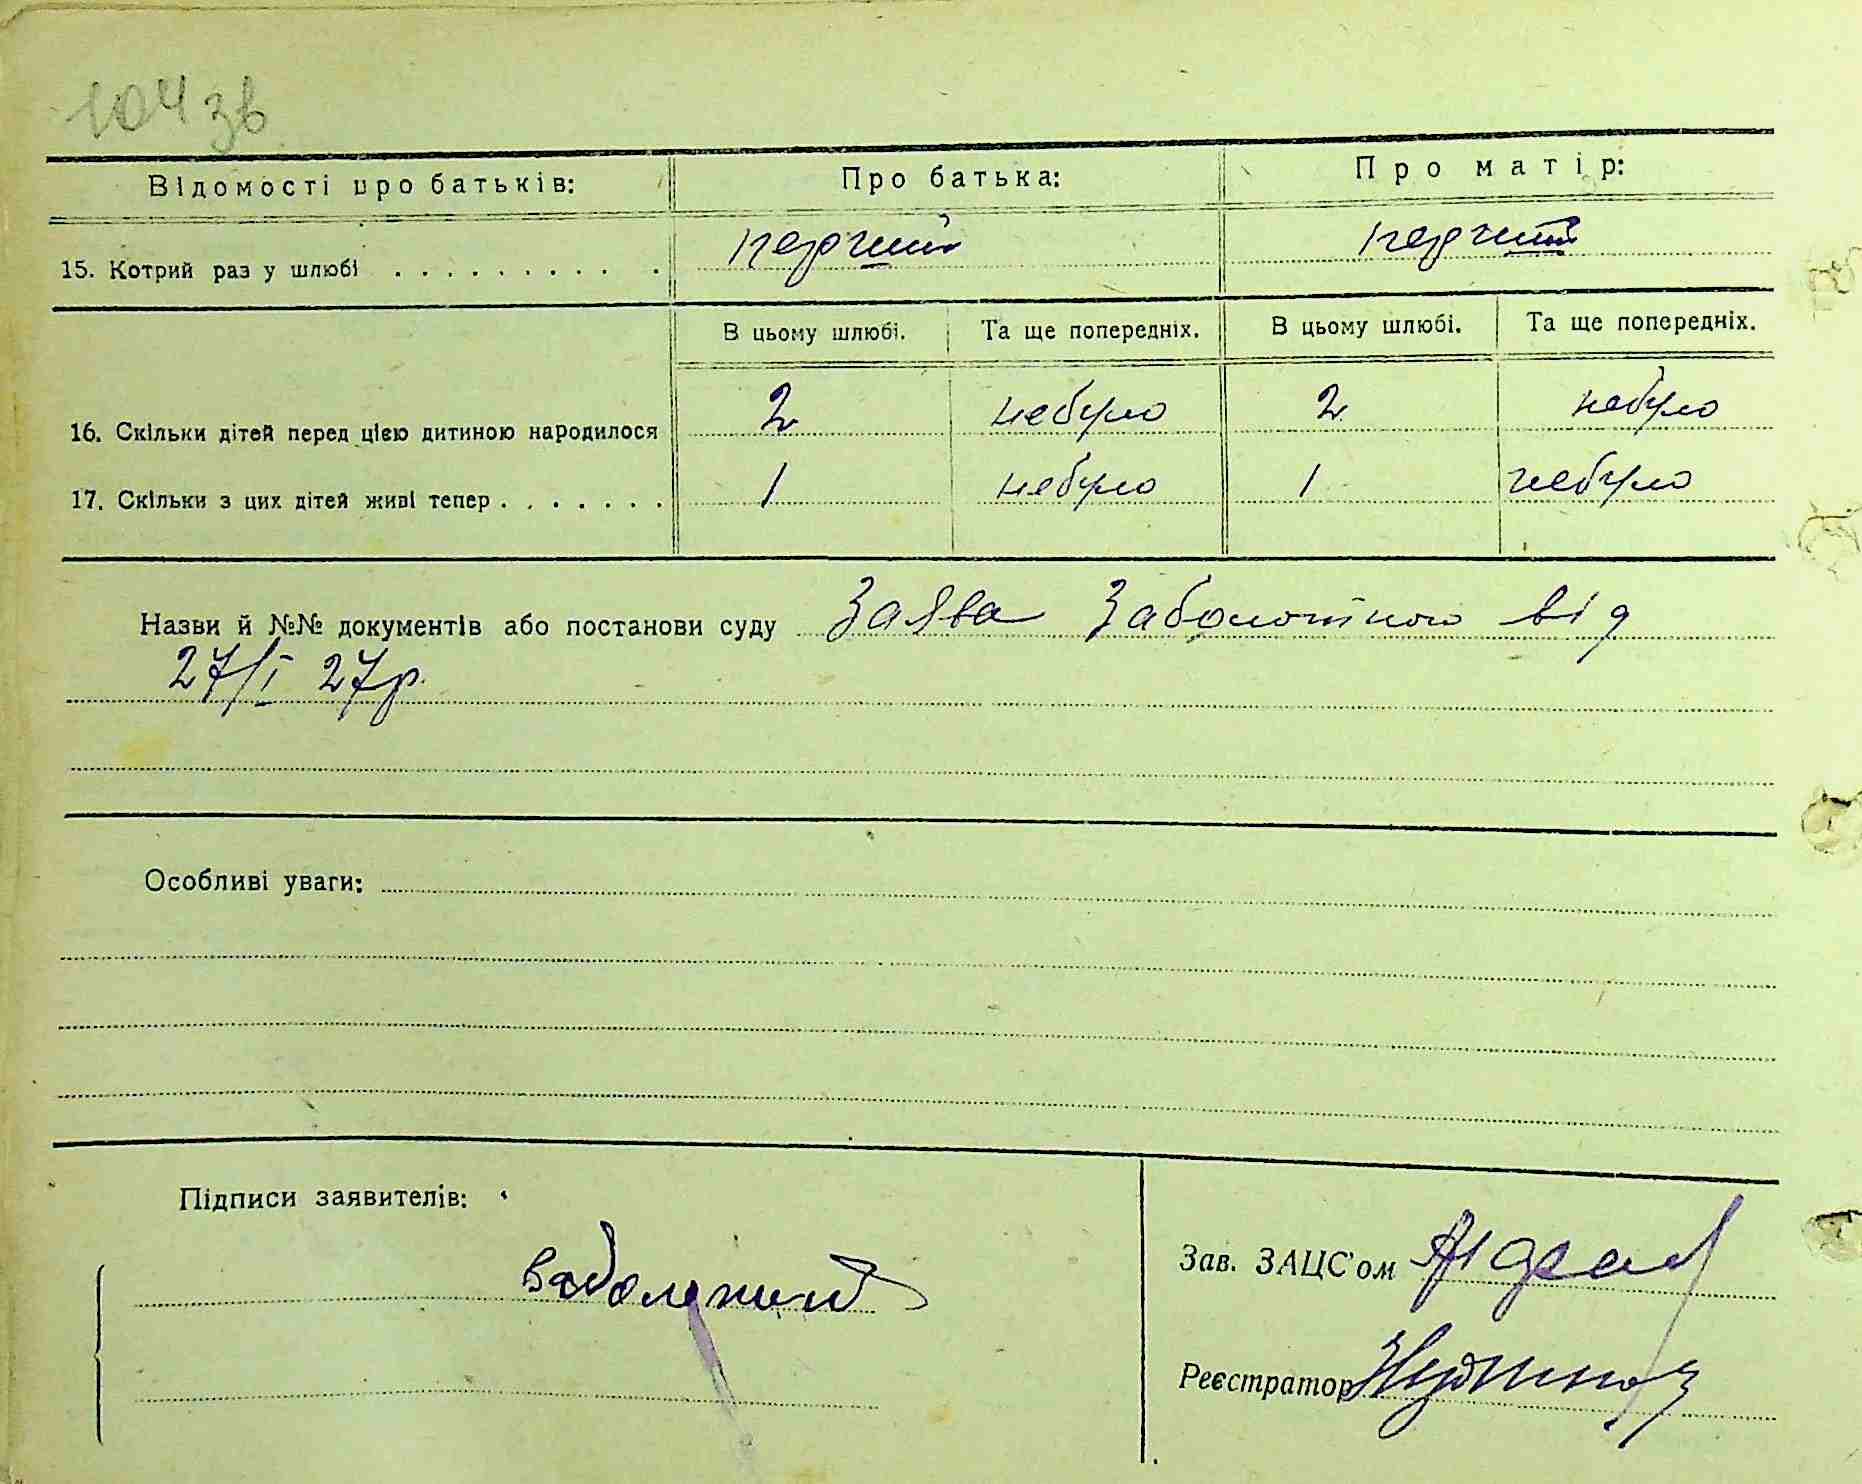 104 зв
Відомості про батьків: Про батька: Про матір:
15. Котрий раз у шлюбі . . . . . . . . . . перший перший
В цьому шлюбі. Та ще попередніх. В цьому шлюбі. Та ще попередніх.
16. Скільки дітей перед цією дитиною народилося 2 небуло 2 небуло
17. Скільки з цих дітей живі тепер . . . . . . . 1 небуло 1 небуло
Назви й №№ документів або постанови суду Заява Заболотного від
27/І 27р.
Особливі уваги:
Підписи заявителів:
Зав. ЗАЦС'ом
Реєстратор